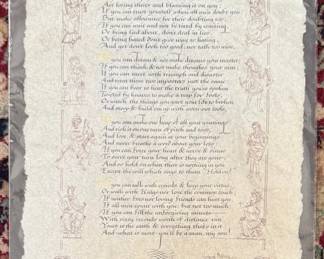 Are losing theirs and blaming it on you,
If you can trust yourself when all men doubt you
But make allowance for their doubting too,
If you can wait and not be tired by waiting
Or being lied about, don't deal in lies
Or being hated don't give way to hating,
And yet don't look too good, nor talk too wise,
you can dream & not make dreams your master
If you can think & not make thoughts your aim
If you can meet with triumph and disaster
And treat those two impostors just the same
If you can bear to hear the truth you've spoken
Twisted by knaves to make a trap for fools,
Or watch the things you gave your life to broken,
And stoop & build em up with worn out tools,
you can make one heap of all your winnings
And risk it on one turn of pitch and toss,
And lose & start again at your beginnings
And never breathe a word about your loss
If you can force your heart & nerve & sinew
To serve your turn long after they are gone
And so hold on when there is nothing in you
Except the will which says to them Hold on!
you can walk with crowds & keep your virtue
Or walk with Kings nor lose the common touch
If neither foes nor loving friends can hurt you
If all men count with you, but not too much
If you can fill the unforgiving minute
With sixty seconds worth of distance run
Yours is the earth & everything that's in it
And what is more you'll be a man, my son!